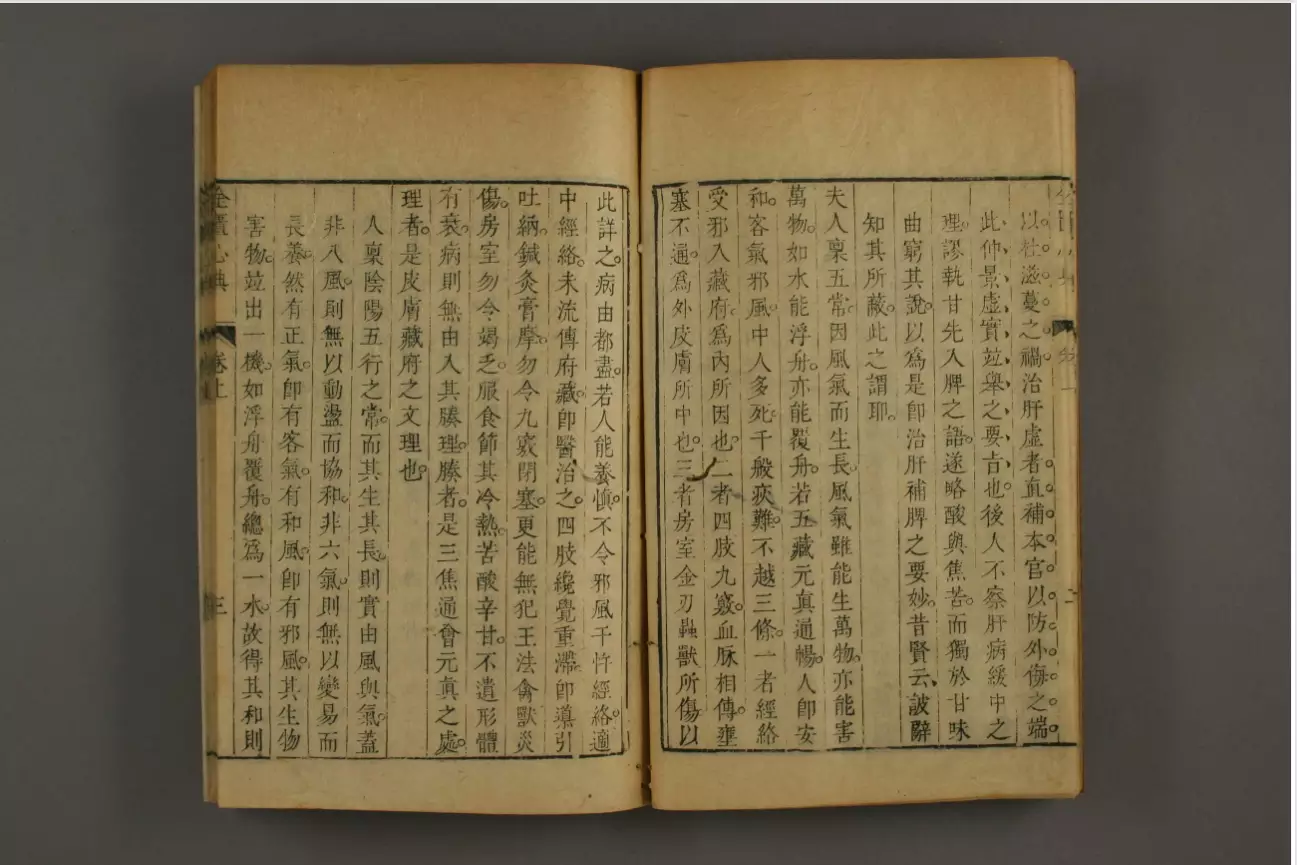 以杜滋蔓之禍治肝虛者直補本宮以防外侮之端
此仲景虛實竝舉之要旨也後人不察肝病緩中之
理謬執甘先入脾之語遂略酸與焦苦而獨於甘味
曲窮其說以爲是卽治肝補脾之要妙昔賢云詖辭
知其所蔽此之謂耶
夫人稟五常因風氣而生長風氣雖能生萬物亦能害
萬物如水能浮舟亦能覆舟若五藏元真通暢人卽安
和客氣邪風中人多死千般疢難不越三條一者經絡
受邪入藏府爲內所因也二者四肢九竅血脉相傳壅
塞不通爲外皮膚所中也三者房室金刃蟲獸所傷以
此詳之病由都盡若人能養慎不令邪風干忤經絡適
中經絡未流傳府藏卽醫治之四肢纔覺重滯卽導引
吐納鍼灸膏摩勿令九竅閉塞更能無犯王法禽獸災
傷房室勿令竭乏服食節其冷熱苦酸辛甘不遺形體
有衰病則無由入其腠理腠者是三焦通會元真之處
理者是皮膚藏府之文理也
人稟陰陽五行之常而其生其長則實由風與氣蓋
非八風則無以動盪而協和非六氣則無以變易而
長養然有正氣卽有客氣有和風卽有邪風其生物
害物竝出一機如浮舟覆舟總爲一水故得其和則
金匱心典 卷上 三